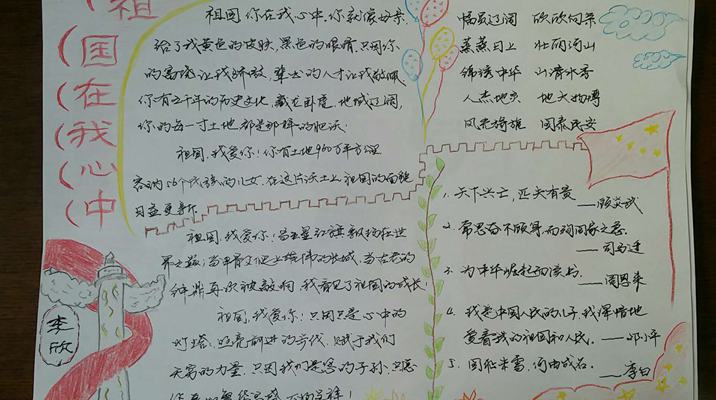 祖
国
在
我
心
中
祖国,你在我心中,你就像母亲,
给了我黄色的皮肤,黑色的眼睛,只因你
的高深让我骄傲,辈出的人才让我敬佩
你有五千年的历史文化,藏龙卧虎,地域辽阔,
你的每一寸土地都是那样的肥沃.
祖国,我爱你!你有土地960万平方公里
56个民族的儿女,在这片沃土上,祖国的面貌
日益更新.
祖国,我爱你!五星红旗飘扬在世
界之巅;当
钟鼎再次被敲响,我看见了祖国的成长!
祖国,我爱你!只因是心中的
灯塔,照亮前进的方向,赋于我们
无穷的力量,只因我们是您的子孙,只愿
幅员辽阔 欣欣向荣
蒸蒸日上 壮丽河山
锦绣中华 山清水秀
人杰地灵 地大物博
国泰民安
1、天下兴亡,匹夫有责
——顾炎武
2、常思奋不顾身,而殉国家之急.
——司马迁
3、为中华崛起而读书.
——周恩来
4、我是中国人民的儿子,我深情地
爱着我的祖国和人民.——邓小平
5、国
——李白
李欣